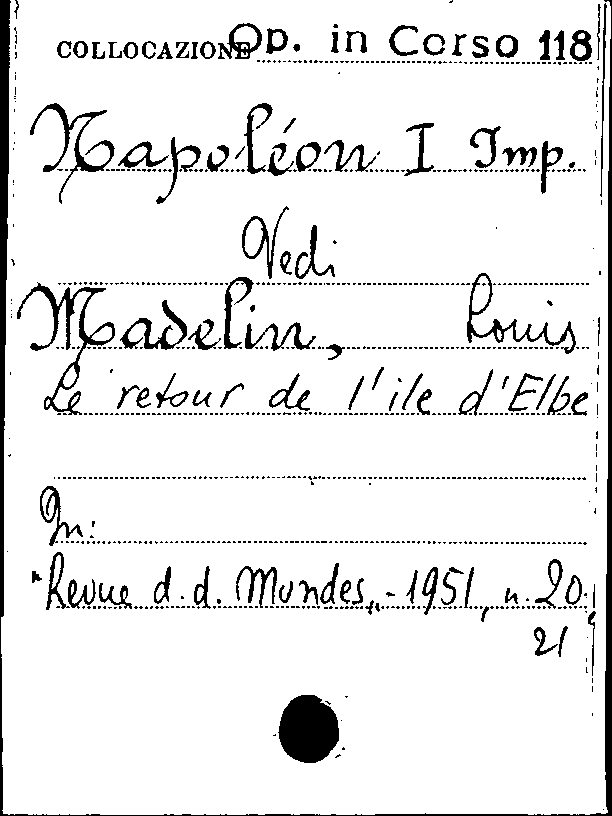 COLLOCAZIONE Op. in Corso 118
Napoléon I Imp.
Vedi
Madelin, Louis
Le retour de l'ile d'Elbe
In:
"Revue d. d. Mondes„ - 1951, n. 20,
21